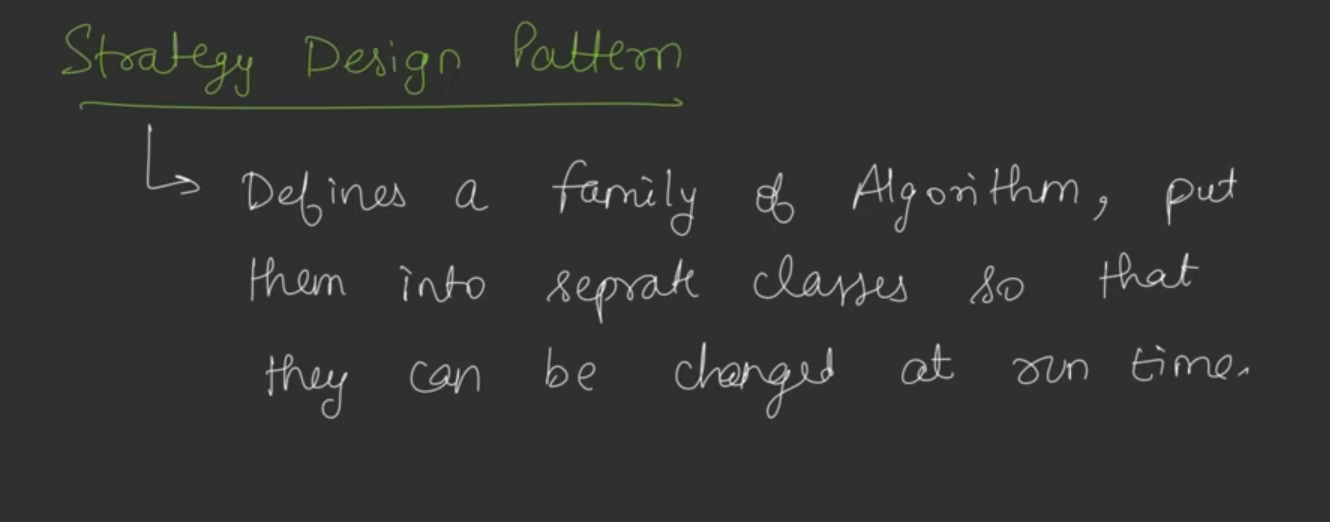 Strategy Design Pattern
Defines a family of Algorithm, put
them into seprate classes so that
they can be changed at run time.